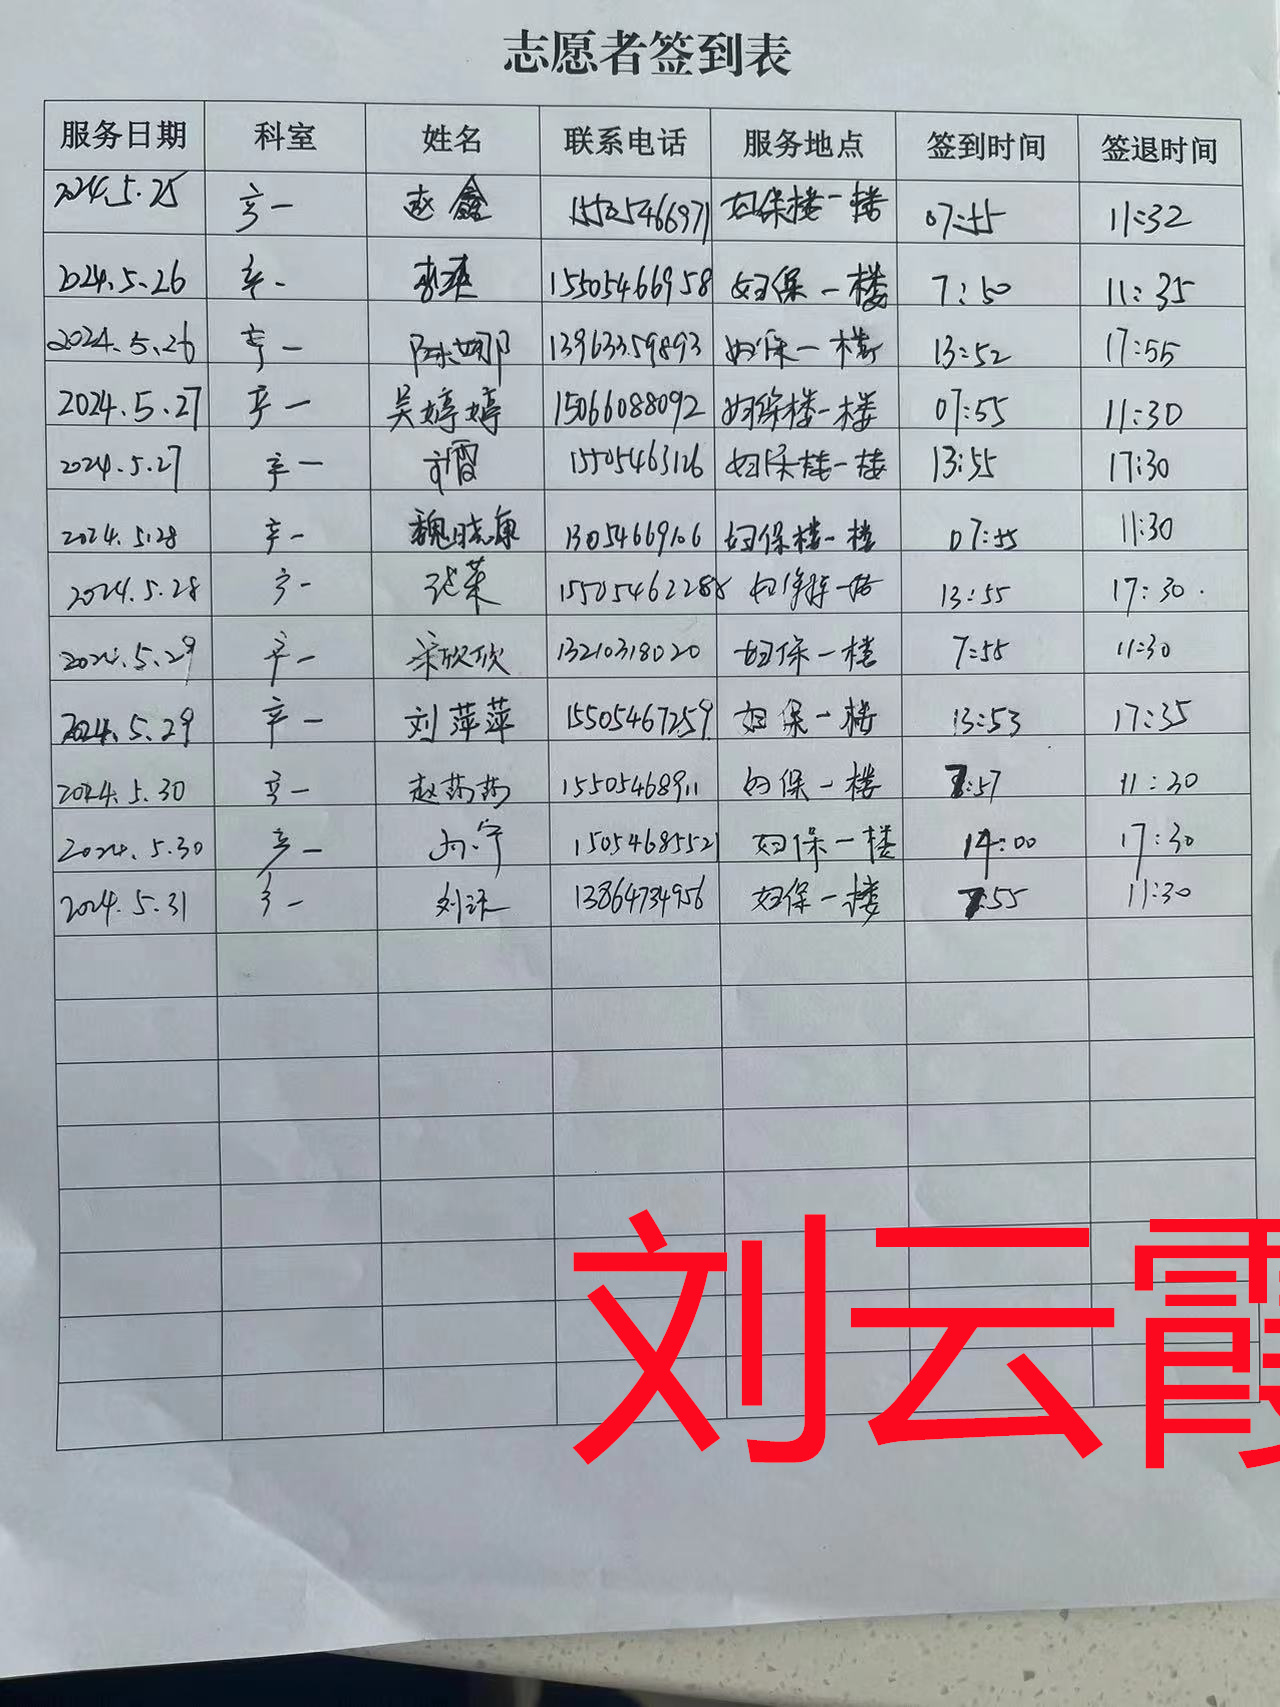 志愿者签到表
服务日期 科室 姓名 联系电话 服务地点 签到时间 签退时间
2024.5.25 产一 赵鑫 15505466971 妇保楼一楼 07:55 11:32
2024.5.26 产一 李爽 15505466958 妇保一楼 7:50 11:35
2024.5.26 产一 陈娜 13963359893 妇保一楼 13:52 17:55
2024.5.27 产一 吴婷婷 15066088092 妇保楼一楼 07:55 11:30
2024.5.27 产一 15505463126 妇保楼一楼 13:55 17:30
2024.5.28 产一 魏晓康 13054669106 妇保楼一楼 07:55 11:30
2024.5.28 产一 张荣 13:55 17:30
2024.5.29 产一 宋欣欣 13210318020 妇保一楼 7:55 11:30
2024.5.29 产一 刘萍萍 15505467259 妇保一楼 13:53 17:35
2024.5.30 产一 赵莎莎 15505468911 妇保一楼 7:57 11:30
2024.5.30 产一 15054685521 妇保一楼 14:00 17:30
2024.5.31 产一 13864734956 妇保一楼 7:55 11:30
刘云霞